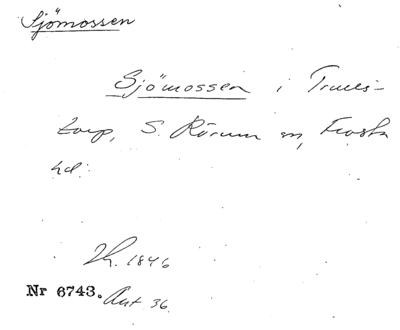 Sjömossen
Sjömossen i Truels-
torp, S. Rörum sn, Frosta
hd.
Th. 1846
Nr 6743. Ant 36.